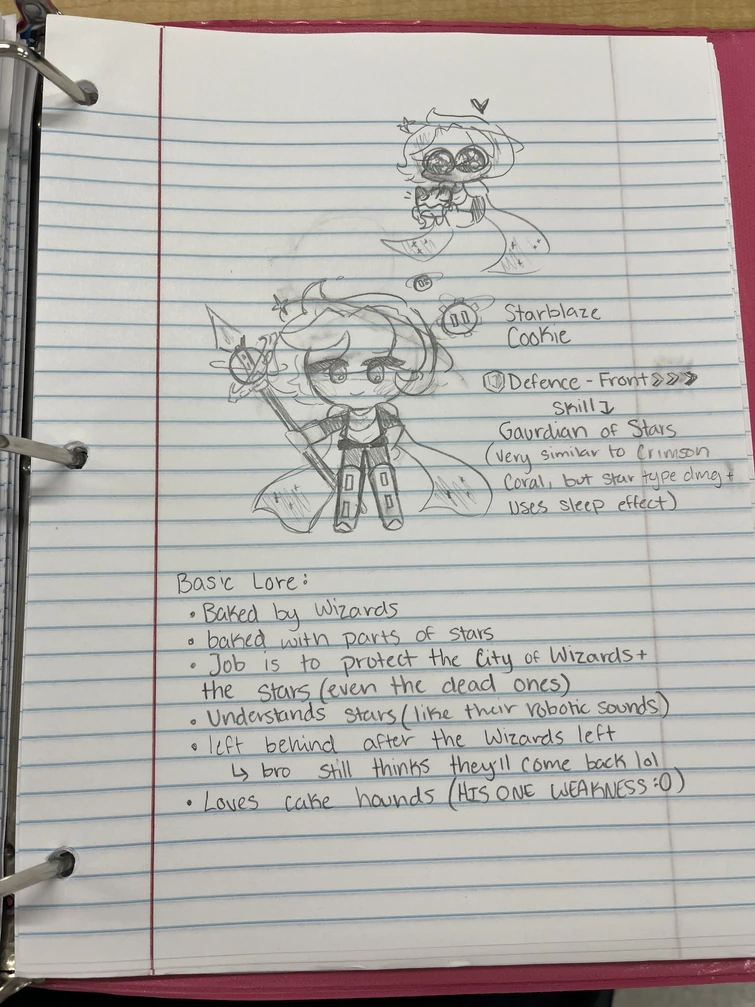 Starblaze
Cookie
Defence - Front >>>
Skill ↴
Gaurdian of Stars
(very similar to Crimson
Coral, but star type dmg +
uses sleep effect)
Basic Lore:
• Baked by Wizards
• baked with parts of stars
• Job is to protect the City of Wizards +
the stars (even the dead ones)
• Understands stars (like their robotic sounds)
• left behind after the Wizards left
↳ bro still thinks they'll come back lol
• Loves cake hounds (HIS ONE WEAKNESS :O)